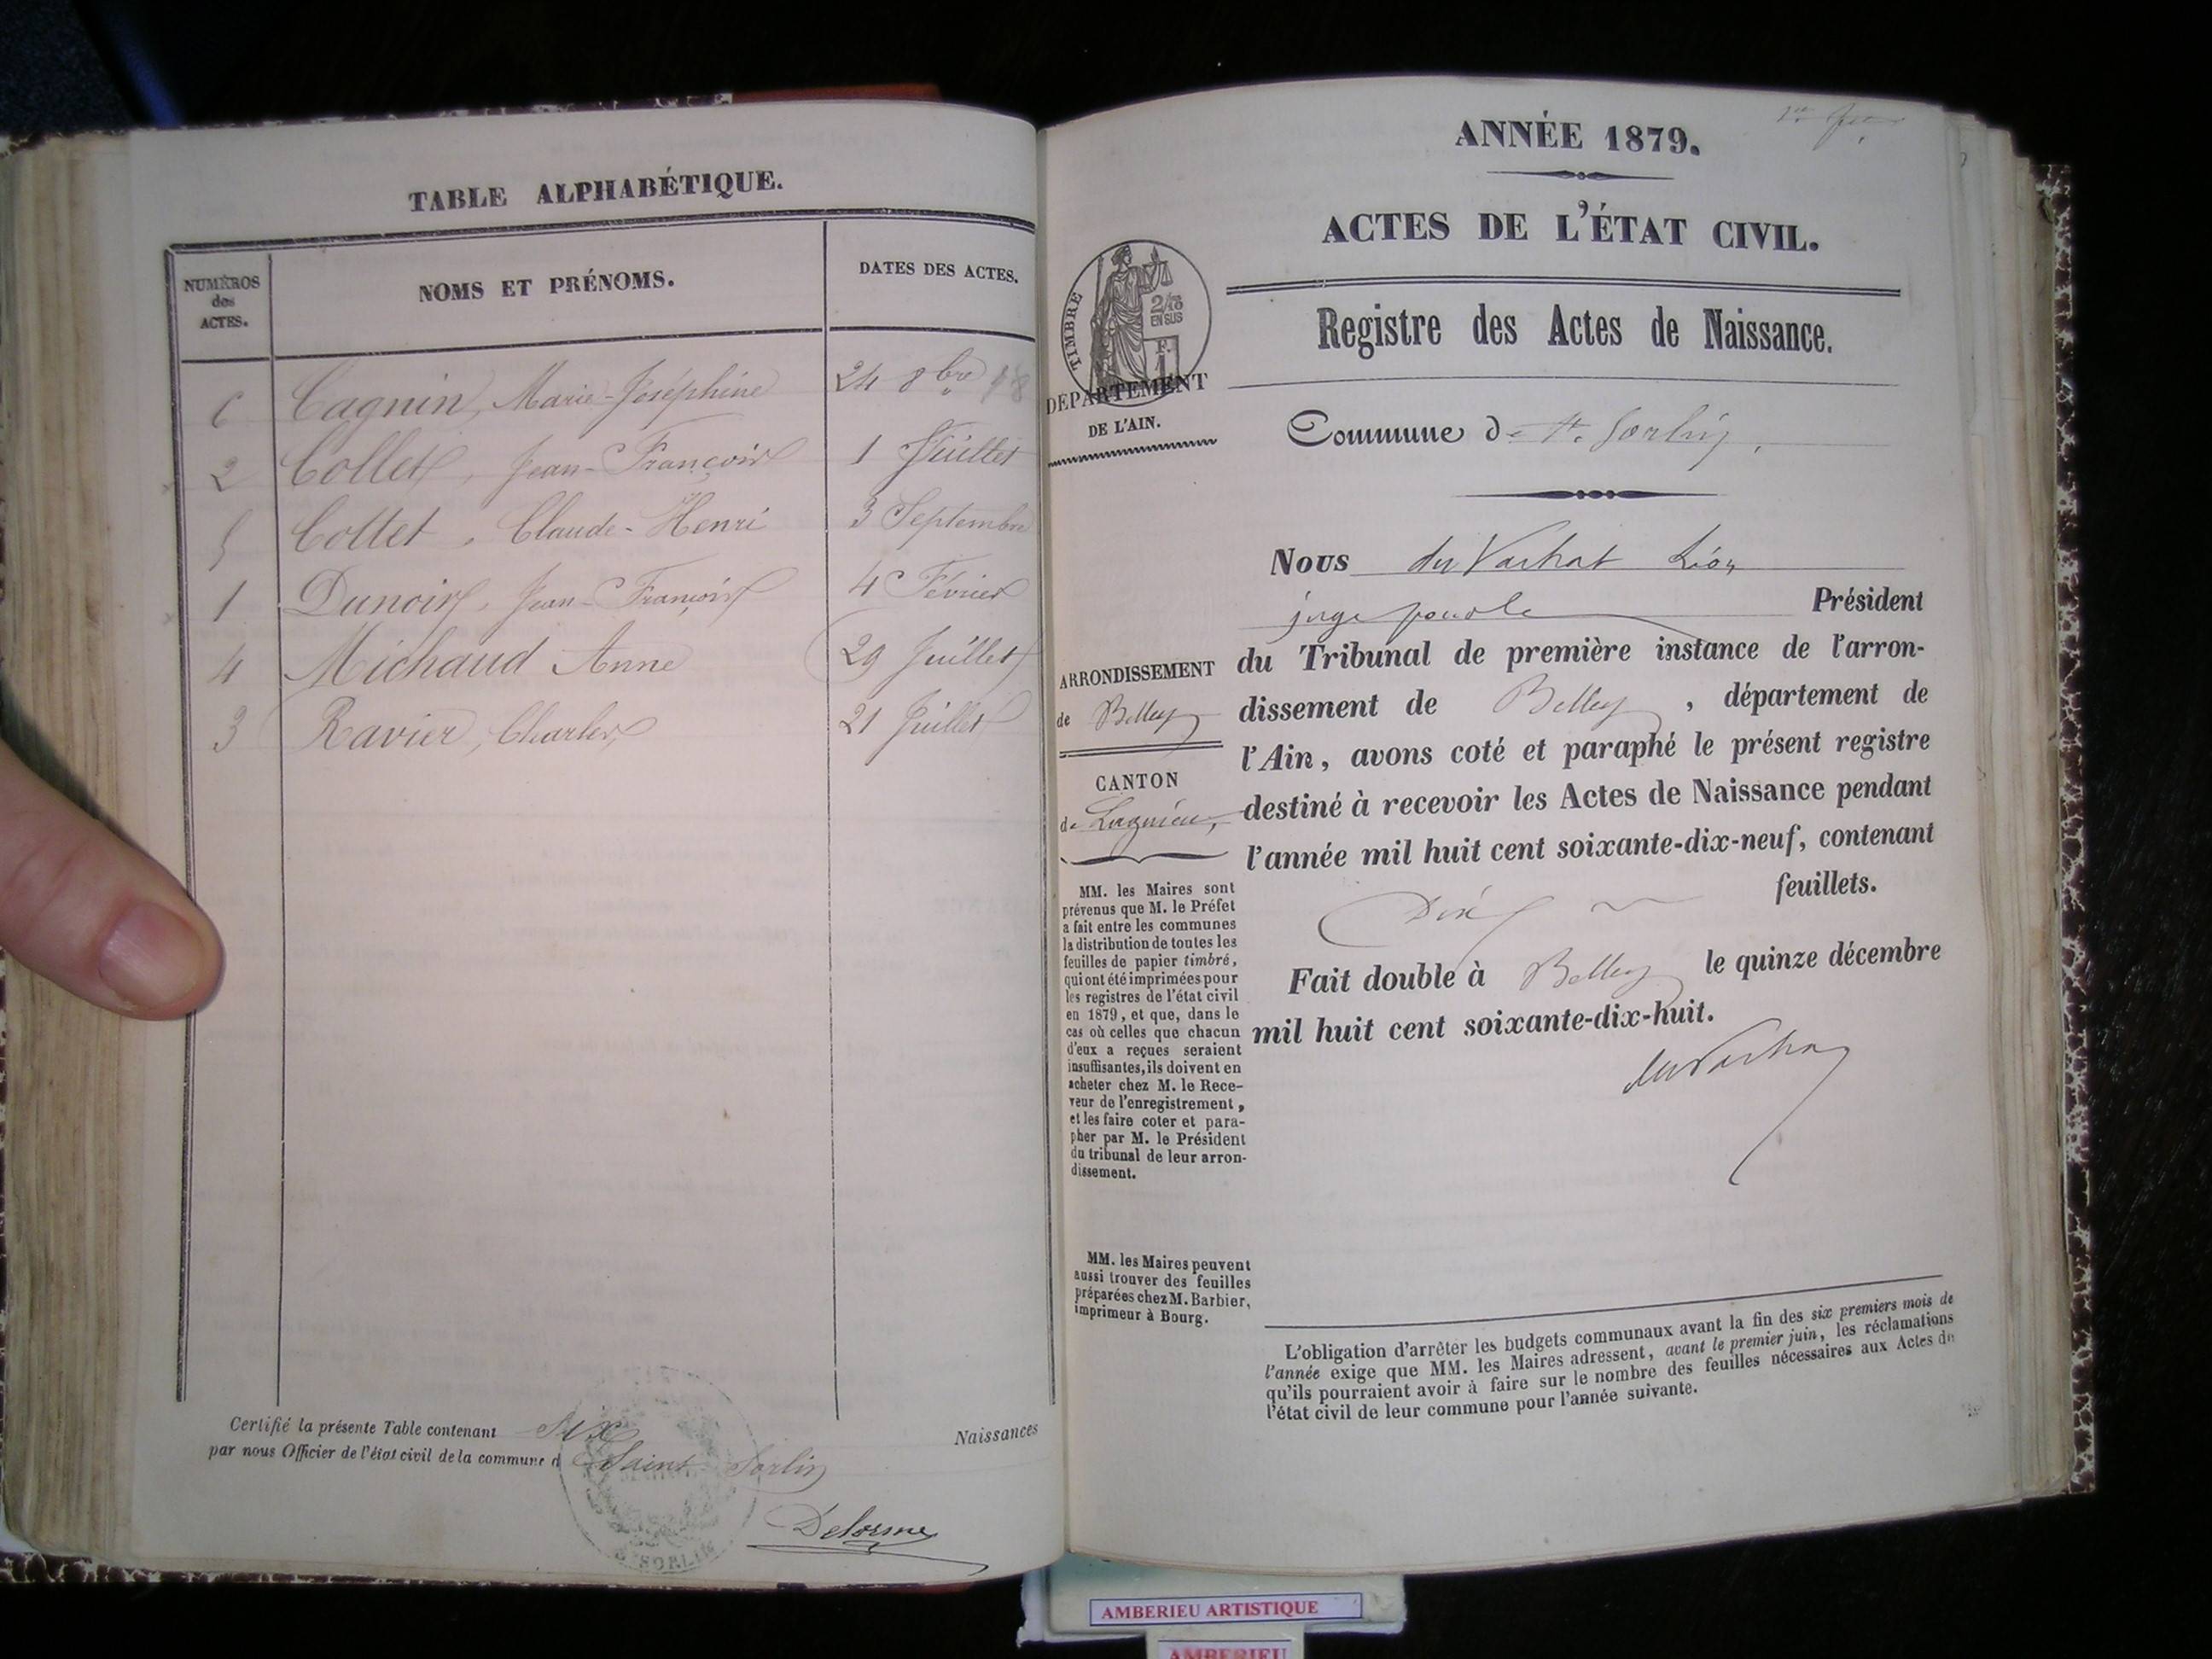 TABLE ALPHABÉTIQUE.
NUMÉROS
des
ACTES.
NOMS ET PRÉNOMS.
DATES DES ACTES.
6 Cagnin, Marie-Joséphine 24 8bre 78
2 Collet, Jean-François 1 Juillet
5 Collet, Claude-Henri 3 Septembre
1 Dunoir, Jean-François 4 Février
4 Michaud Anne 29 Juillet
3 Ravier, Charles 21 Juillet
Certifié la présente Table contenant six Naissances
par nous Officier de l'état civil de la commune d Saint Sorlin
Delorme
ST SORLIN
ANNÉE 1879.
ACTES DE L'ÉTAT CIVIL.
TIMBRE
2/10
EN SUS
F.
1
Registre des Actes de Naissance.
DEPARTEMENT
DE L'AIN.
Commune de St. Sorlin,
Nous du Vachat Léon
juge Président
du Tribunal de première instance de l'arron-
dissement de Belley, département de
l'Ain, avons coté et paraphé le présent registre
destiné à recevoir les Actes de Naissance pendant
l'année mil huit cent soixante-dix-neuf, contenant
Dix feuillets.
Fait double à Belley le quinze décembre
mil huit cent soixante-dix-huit.
du Vachat
ARRONDISSEMENT
de Belley
CANTON
de Lagnieu,
MM. les Maires sont
prévenus que M. le Préfet
a fait entre les communes
la distribution de toutes les
feuilles de papier timbré,
qui ont été imprimées pour
les registres de l'état civil
en 1879, et que, dans le
cas où celles que chacun
d'eux a reçues seraient
insuffisantes, ils doivent en
acheter chez M. le Rece-
veur de l'enregistrement,
et les faire coter et para-
pher par M. le Président
du tribunal de leur arron-
dissement.
MM. les Maires peuvent
aussi trouver des feuilles
préparées chez M. Barbier,
imprimeur à Bourg.
L'obligation d'arrêter les budgets communaux avant la fin des six premiers mois de
l'année exige que MM. les Maires adressent, avant le premier juin, les réclamations
qu'ils pourraient avoir à faire sur le nombre des feuilles nécessaires aux Actes de
l'état civil de leur commune pour l'année suivante.
AMBERIEU ARTISTIQUE
AMBERIEU